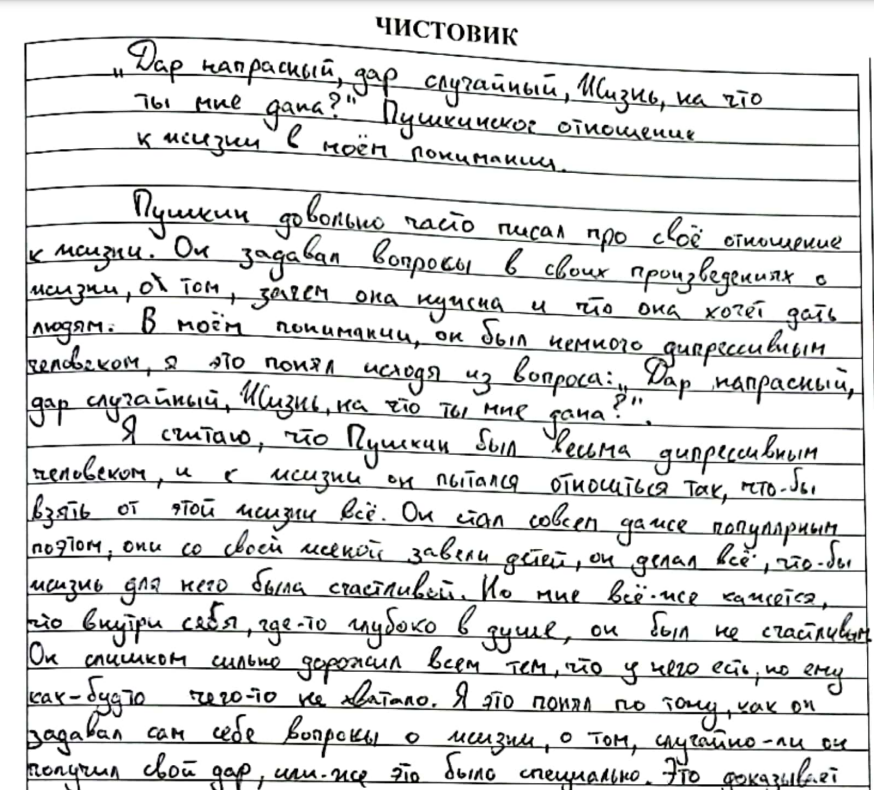 ЧИСТОВИК
„Дар напрасный, дар случайный, Жизнь, на что
ты мне дана?" Пушкинское отношение
к жизни в моём понимании.
Пушкин довольно часто писал про своё отношение
к жизни. Он задавал вопросы в своих произведениях о
жизни, о том, зачем она нужна и что она хочет дать
людям. В моём понимании, он был немного дипрессивным
человеком, я это понял исходя из вопроса: „Дар напрасный,
дар случайный, Жизнь, на что ты мне дана?".
Я считаю, что Пушкин был весьма дипрессивным
человеком, и к жизни он пытался относиться так, что-бы
взять от этой жизни всё. Он стал совсем даже популярным
поэтом, они со своей женой завели детей, он делал всё, что-бы
жизнь для него была счастливой. Но мне всё-же кажется,
что внутри себя, где-то глубоко в душе, он был не счастливым
Он слишком сильно дорожил всем тем, что у него есть, но ему
как-будто чего-то не хватало. Я это понял по тому, как он
задавал сам себе вопросы о жизни, о том, случайно-ли он
получил свой дар, или-же это было специально. Это доказывает